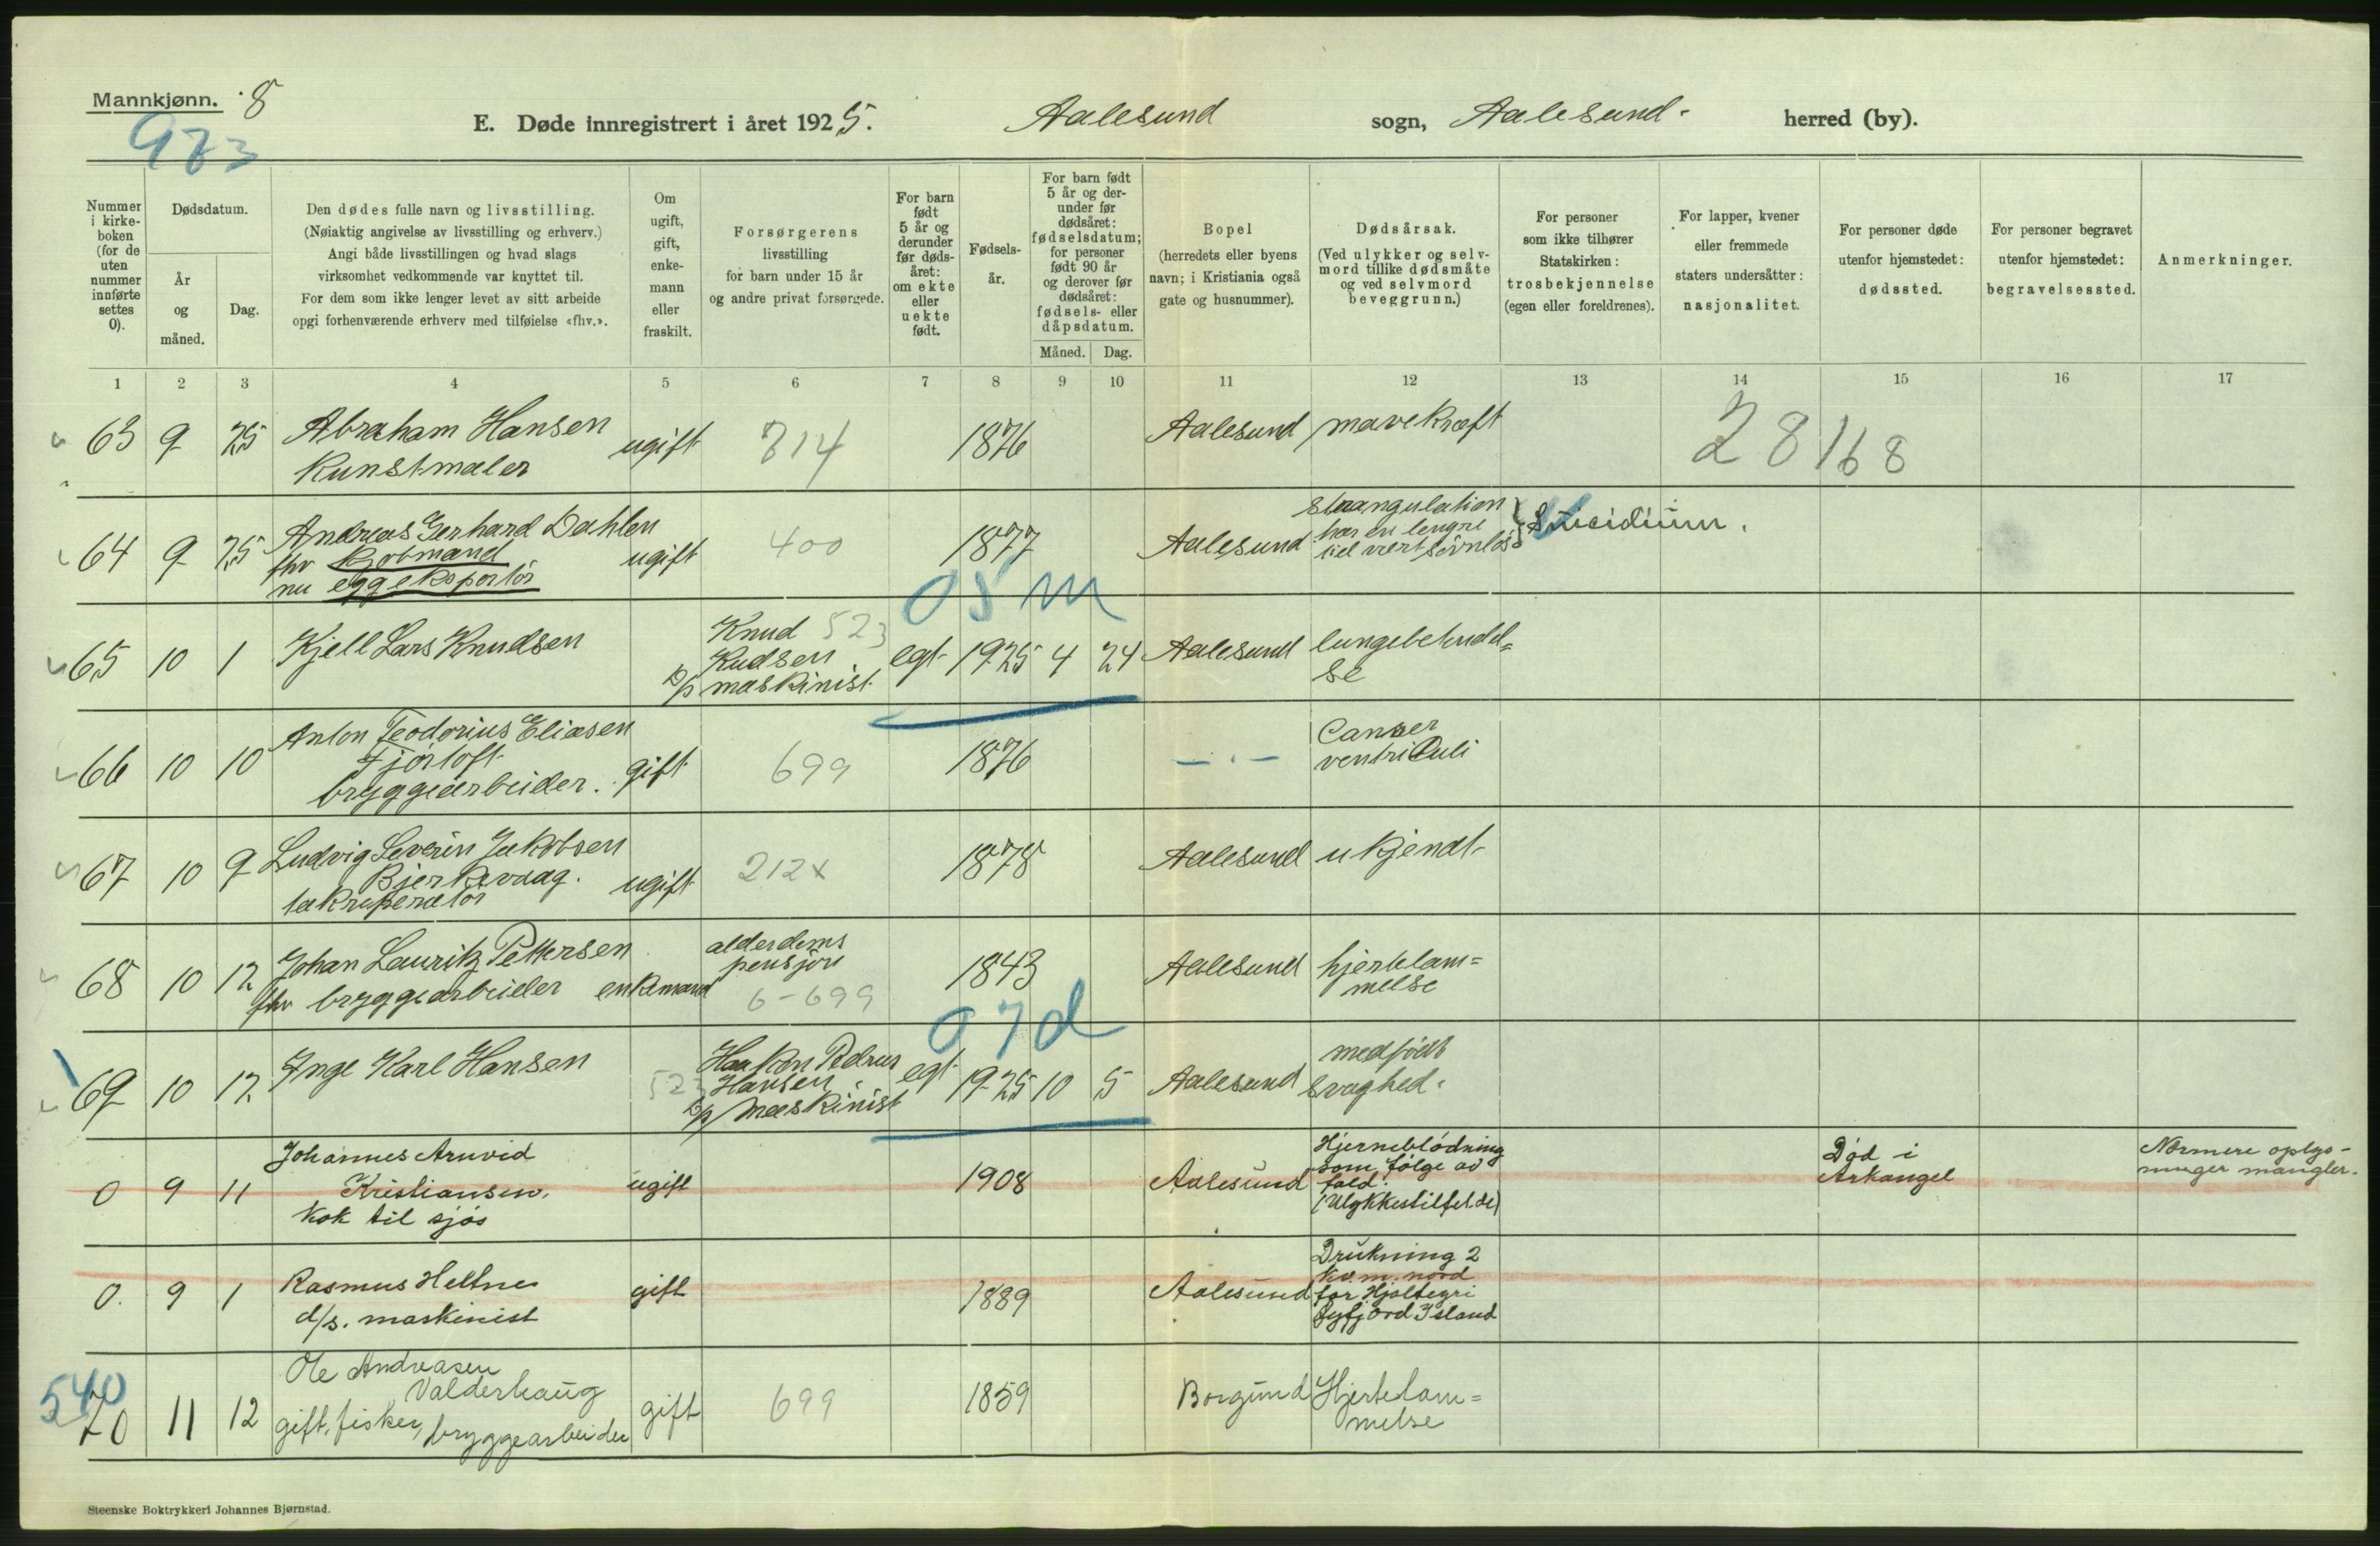 Mannkjønn. 8
973
E. Døde innregistrert i året 1925. Aalesund sogn, Aalesund herred (by).
Nummer i kirke-boken (for de uten nummer innførte settes 0).
Dødsdatum.
År og måned.
Dag.
Den dødes fulle navn og livsstilling.
(Nøiaktig angivelse av livsstilling og erhverv.)
Angi både livsstillingen og hvad slags
virksomhet vedkommende var knyttet til.
For dem som ikke lenger levet av sitt arbeide
opgi forhenværende erhverv med tilføielse «fhv.».
Om ugift, gift, enke-mann eller fraskilt.
Forsørgerens
livsstilling
for barn under 15 år
og andre privat forsørgede.
For barn født 5 år og derunder før døds-året: om ekte eller uekte født.
Fødsels-år.
For barn født 5 år og der-under før dødsåret: fødselsdatum; for personer født 90 år og derover før dødsåret: fødsels- eller dåpsdatum.
Måned. Dag.
Bopel
(herredets eller byens
navn; i Kristiania også
gate og husnummer).
Dødsårsak.
(Ved ulykker og selv-
mord tillike dødsmåte
og ved selvmord
beveggrunn.)
For personer
som ikke tilhører
Statskirken:
trosbekjennelse
(egen eller foreldrenes).
For lapper, kvener
eller fremmede
staters undersåtter:
nasjonalitet.
For personer døde
utenfor hjemstedet:
dødssted.
For personer begravet
utenfor hjemstedet:
begravelsessted.
Anmerkninger.
1 2 3 4 5 6 7 8 9 10 11 12 13 14 15 16 17
63 9 25 Abraham Hansen ugift 714 1876 Aalesund mavekræft 28168
Kunstmaler
64 9 25 Andreas Gerhard Dahlen ugift 400 1877 Aalesund Strangulation
fhv Kjøbmand har en lengre
nu eggeksportör tid vært sövnlös Suicidium.
05 m
65 10 1 Kjell Lars Knudsen Knud 523
Kudsen
D/p maskinist egt 1925 4 24 Aalesund lungebetendel=
se
66 10 10 Anton Teodorius Eliasen
Fjörtoft
bryggearbeider. gift 699 1876 — " — Canser
ventriculi
67 10 9 Ludvig Severin Jakobsen
Bjerkevaag.
takreperatör ugift 212x 1878 Aalesund ukjendt
68 10 12 Johan Lauritz Pettersen
fhv bryggearbeider enkemand alderdoms
pensjon
6-699 1843 Aalesund hjertelam=
melse
07d
69 10 12 Inge Karl Hansen 523 Haakon Pedrus
Hansen
D/p Maskinist egt 1925 10 5 Aalesund medfödt
svaghed.
0 9 11 Johannes Arnvid
Kristiansen.
Kok til sjös ugift 1908 Aalesund Hjerneblödning
som fölge av
fald.
(Ulykkestilfelde) Död i
Arkangel Nærmere oplys-
ninger mangler.
0. 9 1 Rasmus Heltne
d/s. maskinist gift 1889 Aalesund Drukning 2
kv.m. nord
for
Island
540
70 11 12 Ole Andreasen
Valderhaug
gift, fisker, bryggearbeider gift 699 1859 Borgund Hjertelam=
melse
Steenske Boktrykkeri Johannes Bjørnstad.